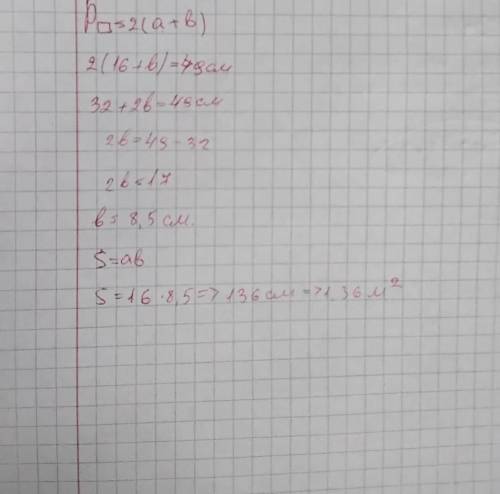 P□=2(a+b)
2(16+b)=49см
32+2b=49см
2b=49-32
2b=17
b=8,5см.
S=ab
S=16·8,5=>136см=>1,36м²